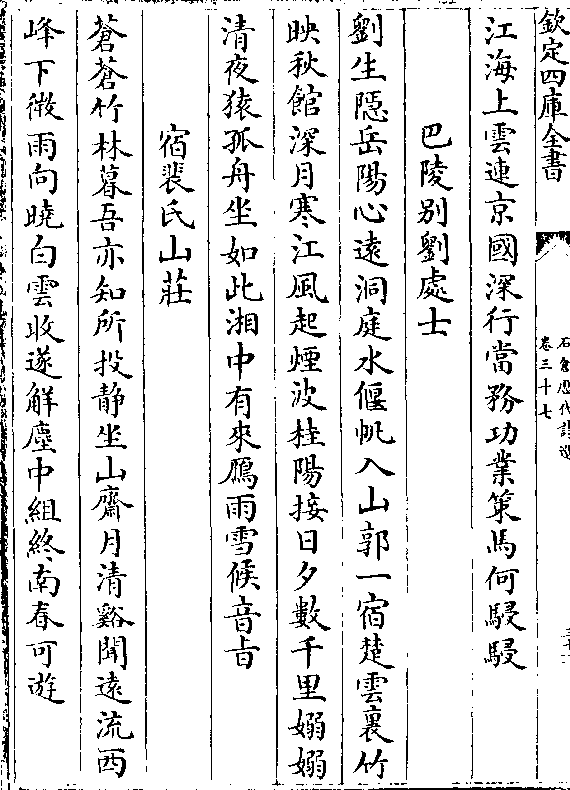 欽定四庫全書
石倉歷代詩選
卷三十七
江海上雲連京國深行當務功業策馬何駸駸
巴陵别劉處士
劉生隱岳陽心遠洞庭水偃帆入山郭一宿楚雲裏竹
映秋館深月寒江風起煙波桂陽接日夕數千里嫋嫋
清夜猿孤舟坐如此湘中有來鴈雨雪候音㫖
宿裴氏山莊
蒼蒼竹林暮吾亦知所投静坐山齋月清谿聞遠流西
峰下微雨向曉白雲收遂解塵中組終南春可遊